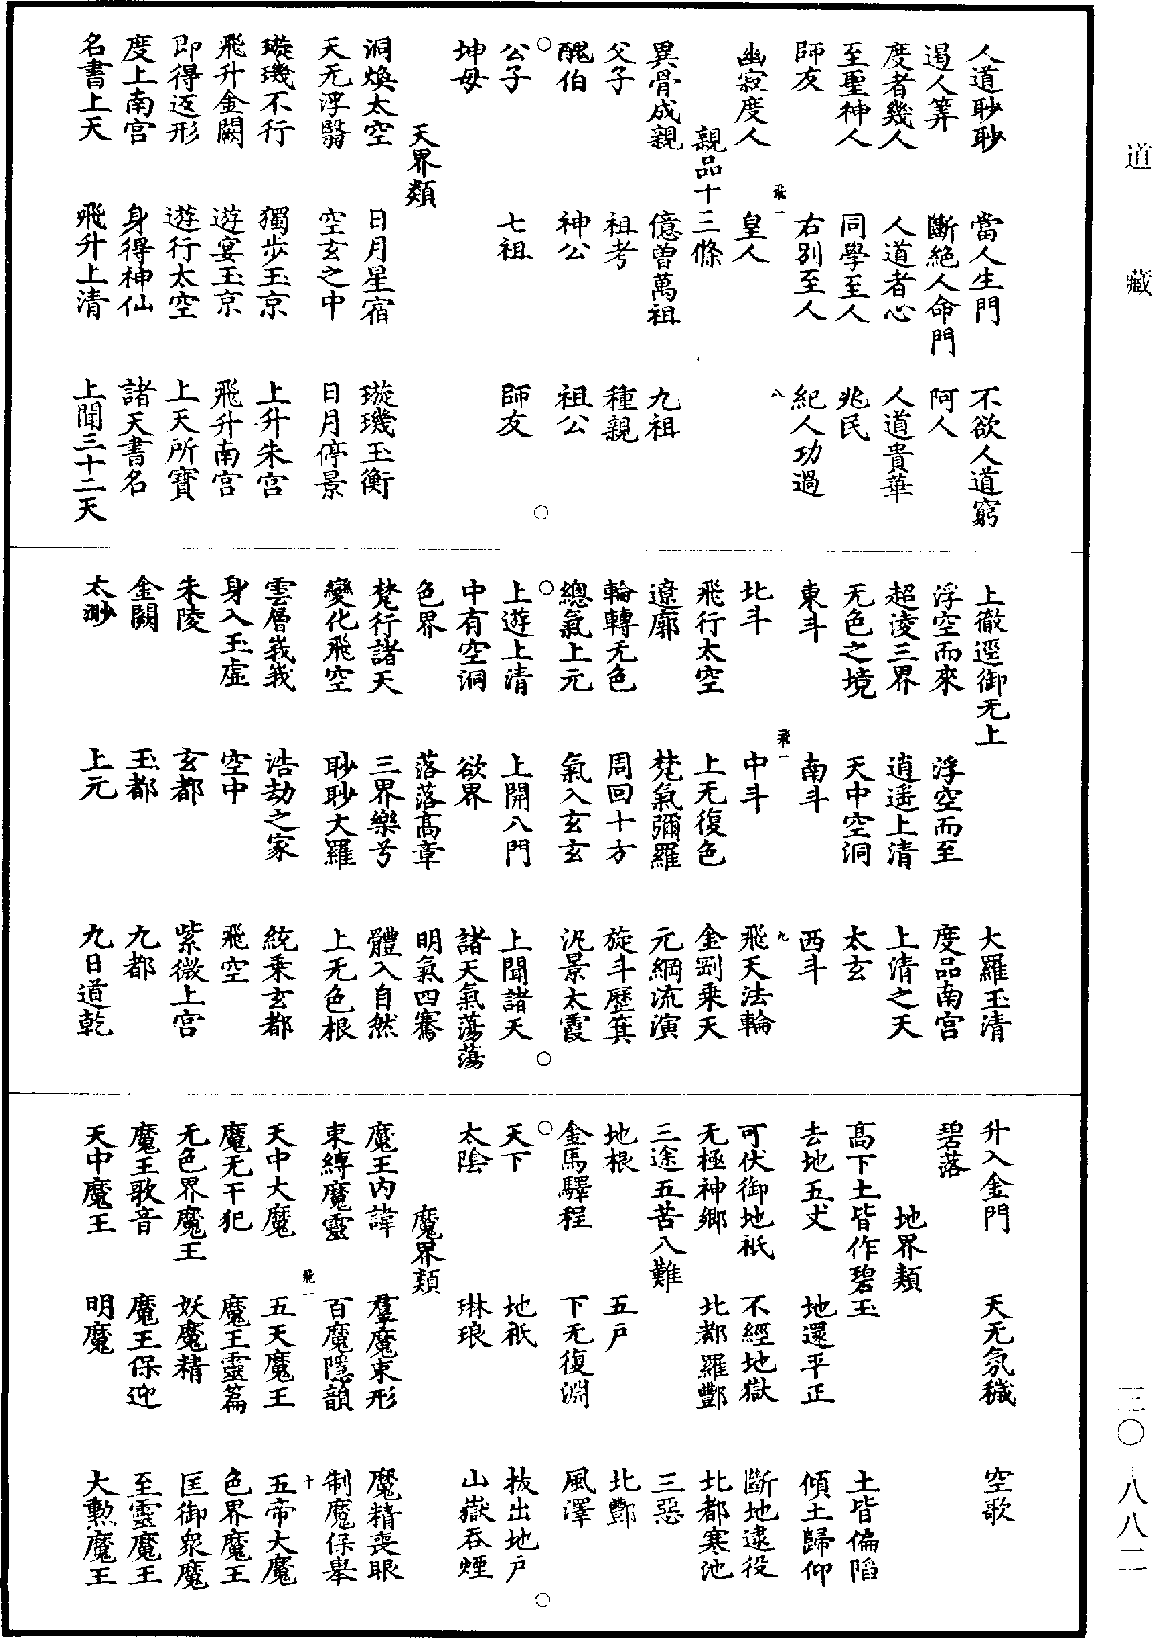 道藏
人道眇眇　當人生門　不欲人道窮
遏人筭　斷絕人命門　阿人
度者幾人　人道者心　人道貴華
至聖神人　同學至人　兆民
師友　右別至人　紀人功過
飛一　八
幽寂度人　皇人
親品十三條
異骨成親　億曾萬祖　九祖
父子　祖考　種親
醜伯　神公　祖公
公子　七祖　師友
坤母
天界類
洞煥太空　日月星宿　璇璣玉衡
天无浮翳　空玄之中　日月停景
璇璣不行　獨步玉京　上升朱宮
飛升金闕　遊宴玉京　飛升南宮
即得返形　遊行太空　上天所寶
度上南宮　身得神仙　諸天書名
名書上天　飛升上清　上聞三十二天
上徹逕御无上　大羅玉清
浮空而來　浮空而至　度品南宮
超淩三界　逍遥上清　上清之天
无色之境　天中空洞　太玄
東斗　南斗　西斗
飛一　九
北斗　中斗　飛天法輪
飛行太空　上无復色　金剛乘天
遼廓　梵氣彌羅　元綱流演
輪轉无色　周回十方　旋斗歷箕
總氣上元　氣入玄玄　汎景太霞
上遊上清　上開八門　上聞諸天
中有空洞　欲界　諸天氣蕩蕩
色界　落落高章　明氣四騫
梵行諸天　三界樂兮　體入自然
變化飛空　眇眇大羅　上无色根
雲層峩峩　浩劫之家　統乘玄都
身入玉虛　空中　飛空
朱陵　玄都　紫微上宮
金闕　玉都　九都
太渺　上元　九日道乾
升入金門　天无氛穢　空歌
碧落
地界類
高下土皆作碧玉　土皆偏陷
去地五丈　地還平正　傾土歸仰
可伏御地祇　不經地獄　斷地逮役
无極神鄉　北都羅酆　北都寒池
三途五苦八難　三惡
地根　五戶　北酆
金馬驛程　下无復淵　風澤
天下　地祇　拔出地戶
太陰　琳琅　山嶽吞煙
魔界類
魔王內諱　羣魔束形　魔精喪眼
束縛魔靈　百魔隱韻　制魔保舉
飛一　十
天中大魔　五天魔王　五帝大魔
魔无干犯　魔王靈篇　色界魔王
无色界魔王　妖魔精　匡御衆魔
魔王歌音　魔王保迎　至靈魔王
天中魔王　明魔　大勲魔王
三〇八八二